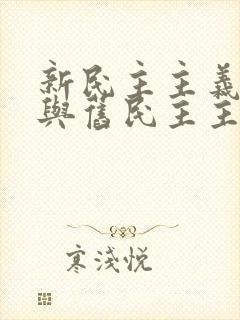 新民主主義
與舊民主主
寒淺悦